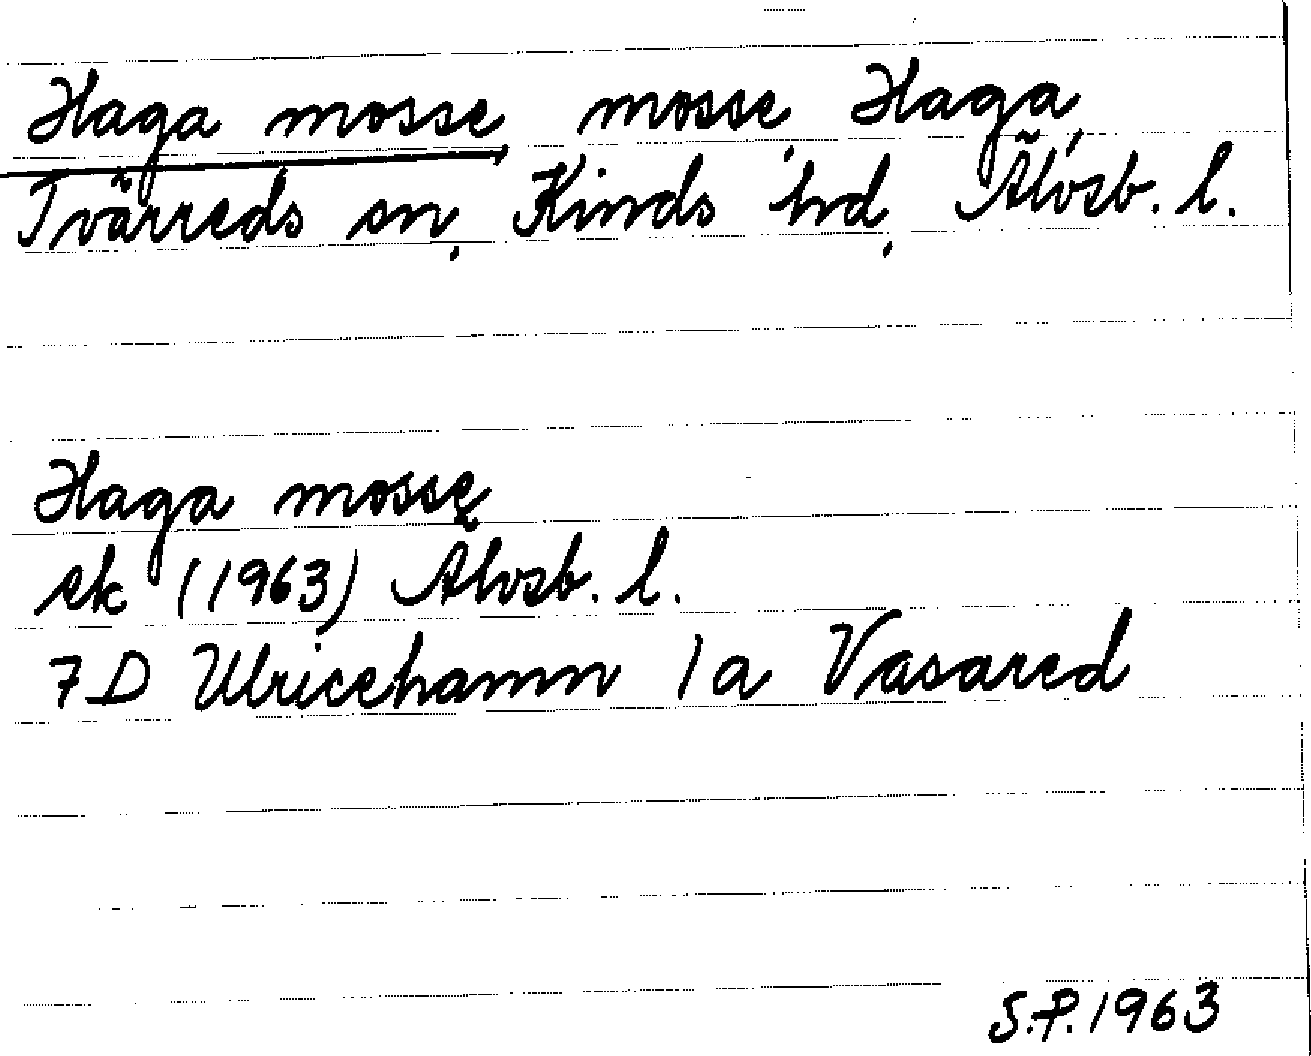 Haga mosse, mosse, Haga,
Tvärreds sn, Kinds hd, Älvsb. l.
Haga mosse
ek (1963) Älvsb. l.
7D Ulricehamn 1a Vasared
S.P. 1963